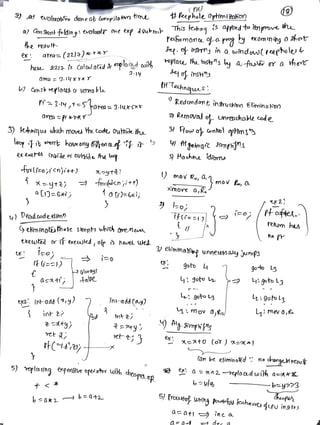 2) all evaluations done at compilation time
a) Constant folding: evaluate one exp & submit the result
ex: area = (22/7)*r*r
here 22/7 is calculated & replaced with 3.14
area = 3.14*r*r
b) Const replaces a variable
Pi = 3.14, r=5
area = pi*r*r
area = 3.14*5*5
3) technique which moves the code outside the loop if it won't have any difference if it is executed inside or outside the loop
for(i=0; i<n; i++)
{
x = y+z;
a[i] = 6*i;
}
x=y+z;
for(i=0; i<n; i++)
{
a[i] = 6*i;
}
4) Deadcode elimn
eliminates those stmnts which are never executed or if executed, o/p is never used
ex: i=0;
if(i==1)
{
a=x+i;
}
always false
i=0
ex2: int add(x,y)
{
int z;
z=x+y;
ret z;
pf("%d",z);
}
int add(x,y)
{
int z;
z=x+y;
ret z;
}
5) replacing expensive operator with cheaper op
+ < *
b=a*2
b=a+a
IV
19
Peephole Optimization
This techniq is applied to improve the Performance of a prog by examining a short seq. of instr's in a window (peephole) & replace the inst's by a faster or a short seq of instr's
PH Techniques:
1) Redundant instruction Elimination
2) Removal of unreachable code
3) Flow of control optimⁿs
4) Algebraic simplifⁿs
5) Machine Idioms
1) mov R₀, a
mov a, R₀
mov R₀, a
2) i=0;
if(i==1)
{
//
}
i=0;
ex2:
Pf after return has no pr
3) eliminating unnecessary jumps
ex: goto L1
L1: goto L2
L2: goto L3
L3: mov a, R₀
goto L3
L1: goto L3
L2: goto L3
L3: mov a, R₀
4) Alg simplifⁿs
ex: x=x+0 (or) x=x*1
can be eliminated :: no change in result
ex: a = x^2 - replaced with a=x*x
b = y/8
b=y>>3
cheaper
5) Process of using powerful features of CPU instrs
a=a+1 => inc a